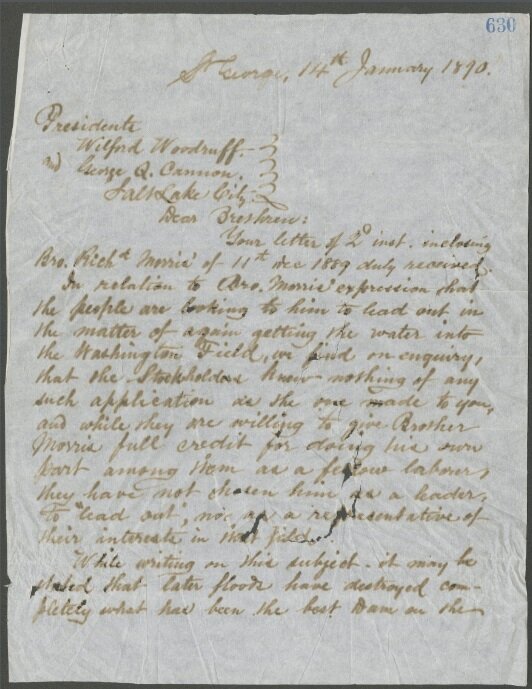 630
St George, 14th January 1890.
Presidents
Wilford Woodruff.
and George Q. Cannon.
Salt Lake City.
Dear Brethren:
Your letter of 2d inst. inclosing
Bro. Richd Morris' of 11th Dec 1889 duly received.
In relation to Bro. Morris' expression that
the people are looking to him to lead out in
the matter of again getting the water into
the Washington Field, we find on enquiry,
that the Stockholders know nothing of any
such application as the one made to you,
and while they are willing to give Brother
Morris full credit for doing his own
part among them as a fellow laborer,
they have not chosen him as a leader,
to "lead out", nor as a representative of
their interests in that field.
While writing on this subject it may be
stated that later floods have destroyed com-
pletely what has been the best Dam on the